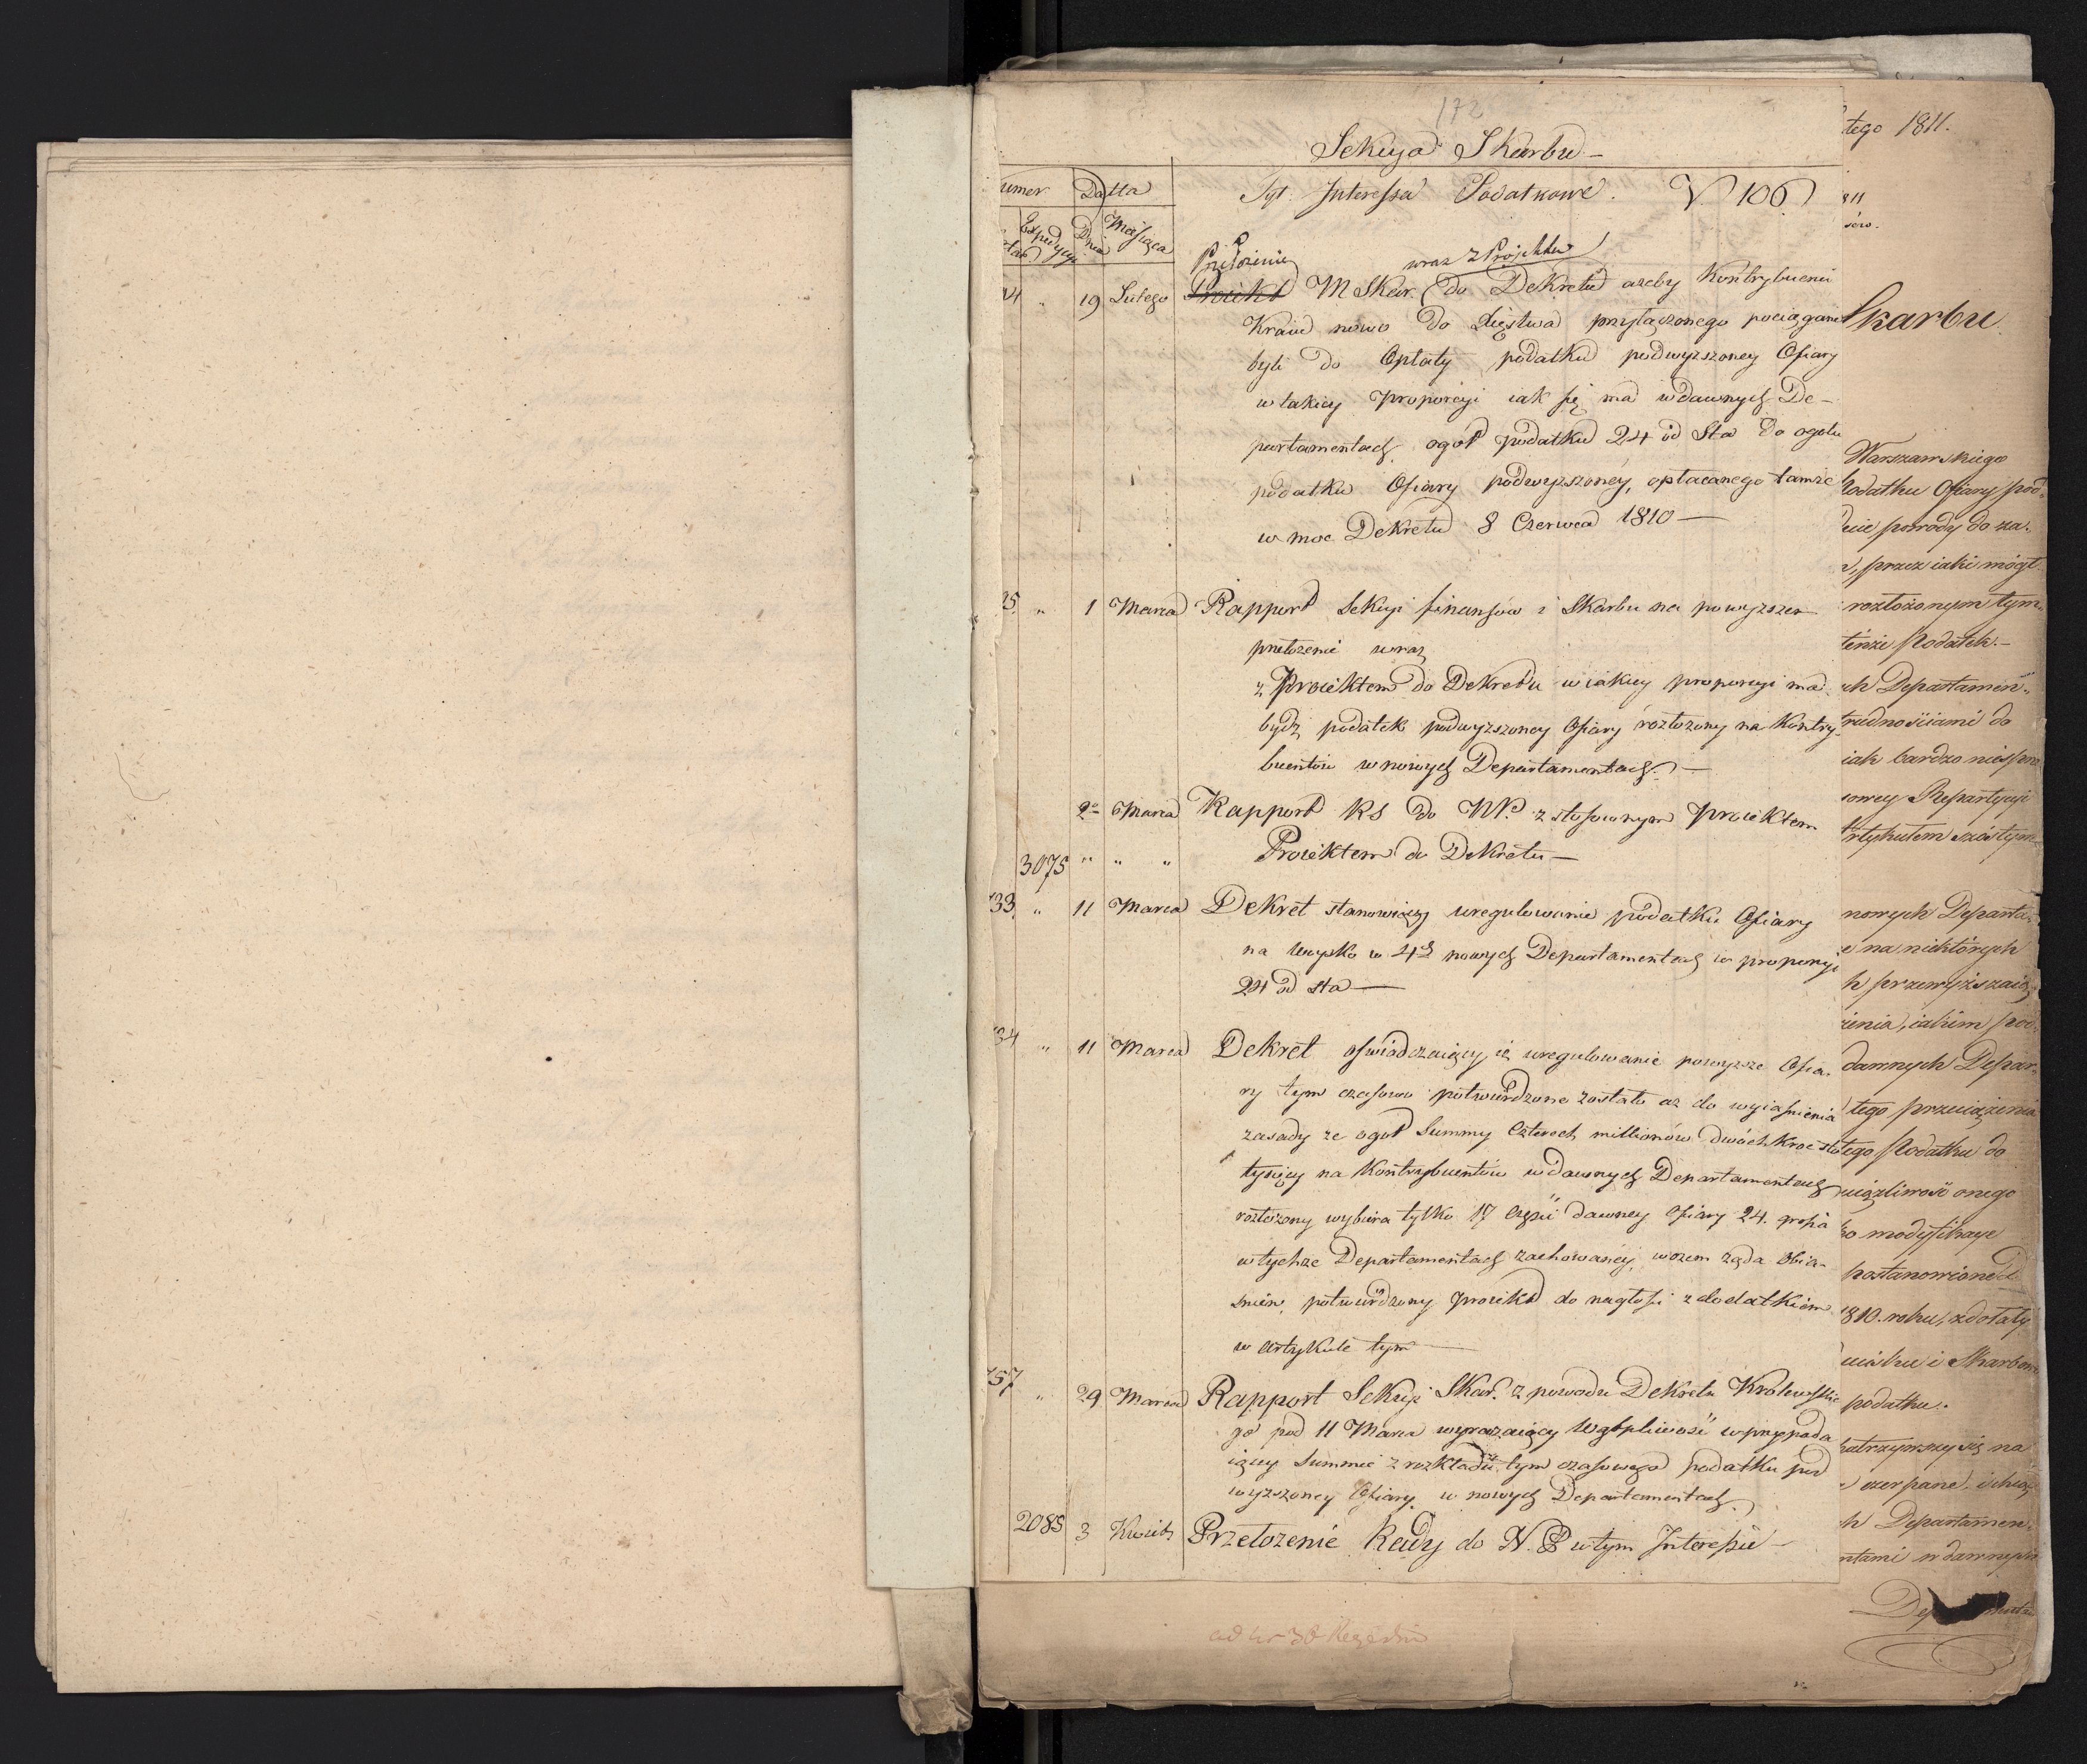 172
Sekcya Skarbu –
umer Datta
Tyt. Interessa Podatkowe. V 106
Expedycyi Dnia Miesiąca
Przełożenie wraz z Projektem
" 19 Lutego Proiekt M Skar. do Dekretu azeby Kontrybuenci
Kraiu nowo do Xięstwa przyłączonego pociągani
byli do Opłaty podatku podwyzszoney Ofiary
w takiey Proporcyi iak się ma w dawnych De-
partamentach ogoł podatku 24 od Sta do ogołu
podatku Ofiary podwyzszoney, opłacanego tamże
w moc Dekretu 8 Czerwca 1810 —
25 " 1 Marca Rapport Sekcyi finansów i Skarbu na powyzsze
przełozenie wraz
z Proiektem do Dekretu w iakiey proporcyi ma
bydz podatek podwyzszoney Ofiary rozłozony na Kontry-
buentów w nowych Departamentach. —
2º Marca Rapport KS do NP. z stosownym Proiektem
3075 " " " Proiektem do Dekretu —
33 " 11 Marca Dekret stanowiący uregulowanie podatku Ofiary
na Woysko w 4ch nowych Departamentach w proporcyi
24 od sta —
34 " 11 Marca Dekret oświadczaiący iz uregulowanie powyzsze Ofia-
ry tym czasowo potwierdzone zostało az do wyiaśnienia
zasady ze ogoł Summy Czterech millionów dwóchkroć sto
tysięcy na Kontrybuentów w dawnych Departamentach
rozłozony wybiera tylko 17 Części dawney Ofiary 24. grosza
w tychze Departamentach zachowaney, wczem ząda Obia-
śnień, potwierdzony proiekt do nagłości z dodatkiem
w Artykule tym —
757 " 29 Marca Rapport Sekcyi Skar. z powodu Dekretu Królewskie
go pod 11 Marca wyrazaiący Wątpliwość w przypada
iącey Summie z rozkładu tym czasowego podatku pod
wyzszoney Ofiary w nowych Departamentach.
2085 3 Kwiet. Przełozenie Rady do N.P w tym Interessie —
tego 1811.
Skarbu
Warszawskiego
Podatku Ofiary pod-
porrody do za-
, przez iaki mógł
rozłożonym tym
tenże Podatek. –
ch Departamen-
trudnościami do
iak bardzo niespra
owey Repartycyi
Artykułem szóstym
nowych Departa-
e na niektórych
h przewyższaią
ienia, iakim pod
dawnych Depar-
tego przeciążenia
tego Podatku do
uciążliwość onego
ko modyfikacye
postanowione
1810. roku, zdołały
i Skarbowi
podatku.
patrzywszy się na
czerpane,
h Departamen-
ntami w dawnych